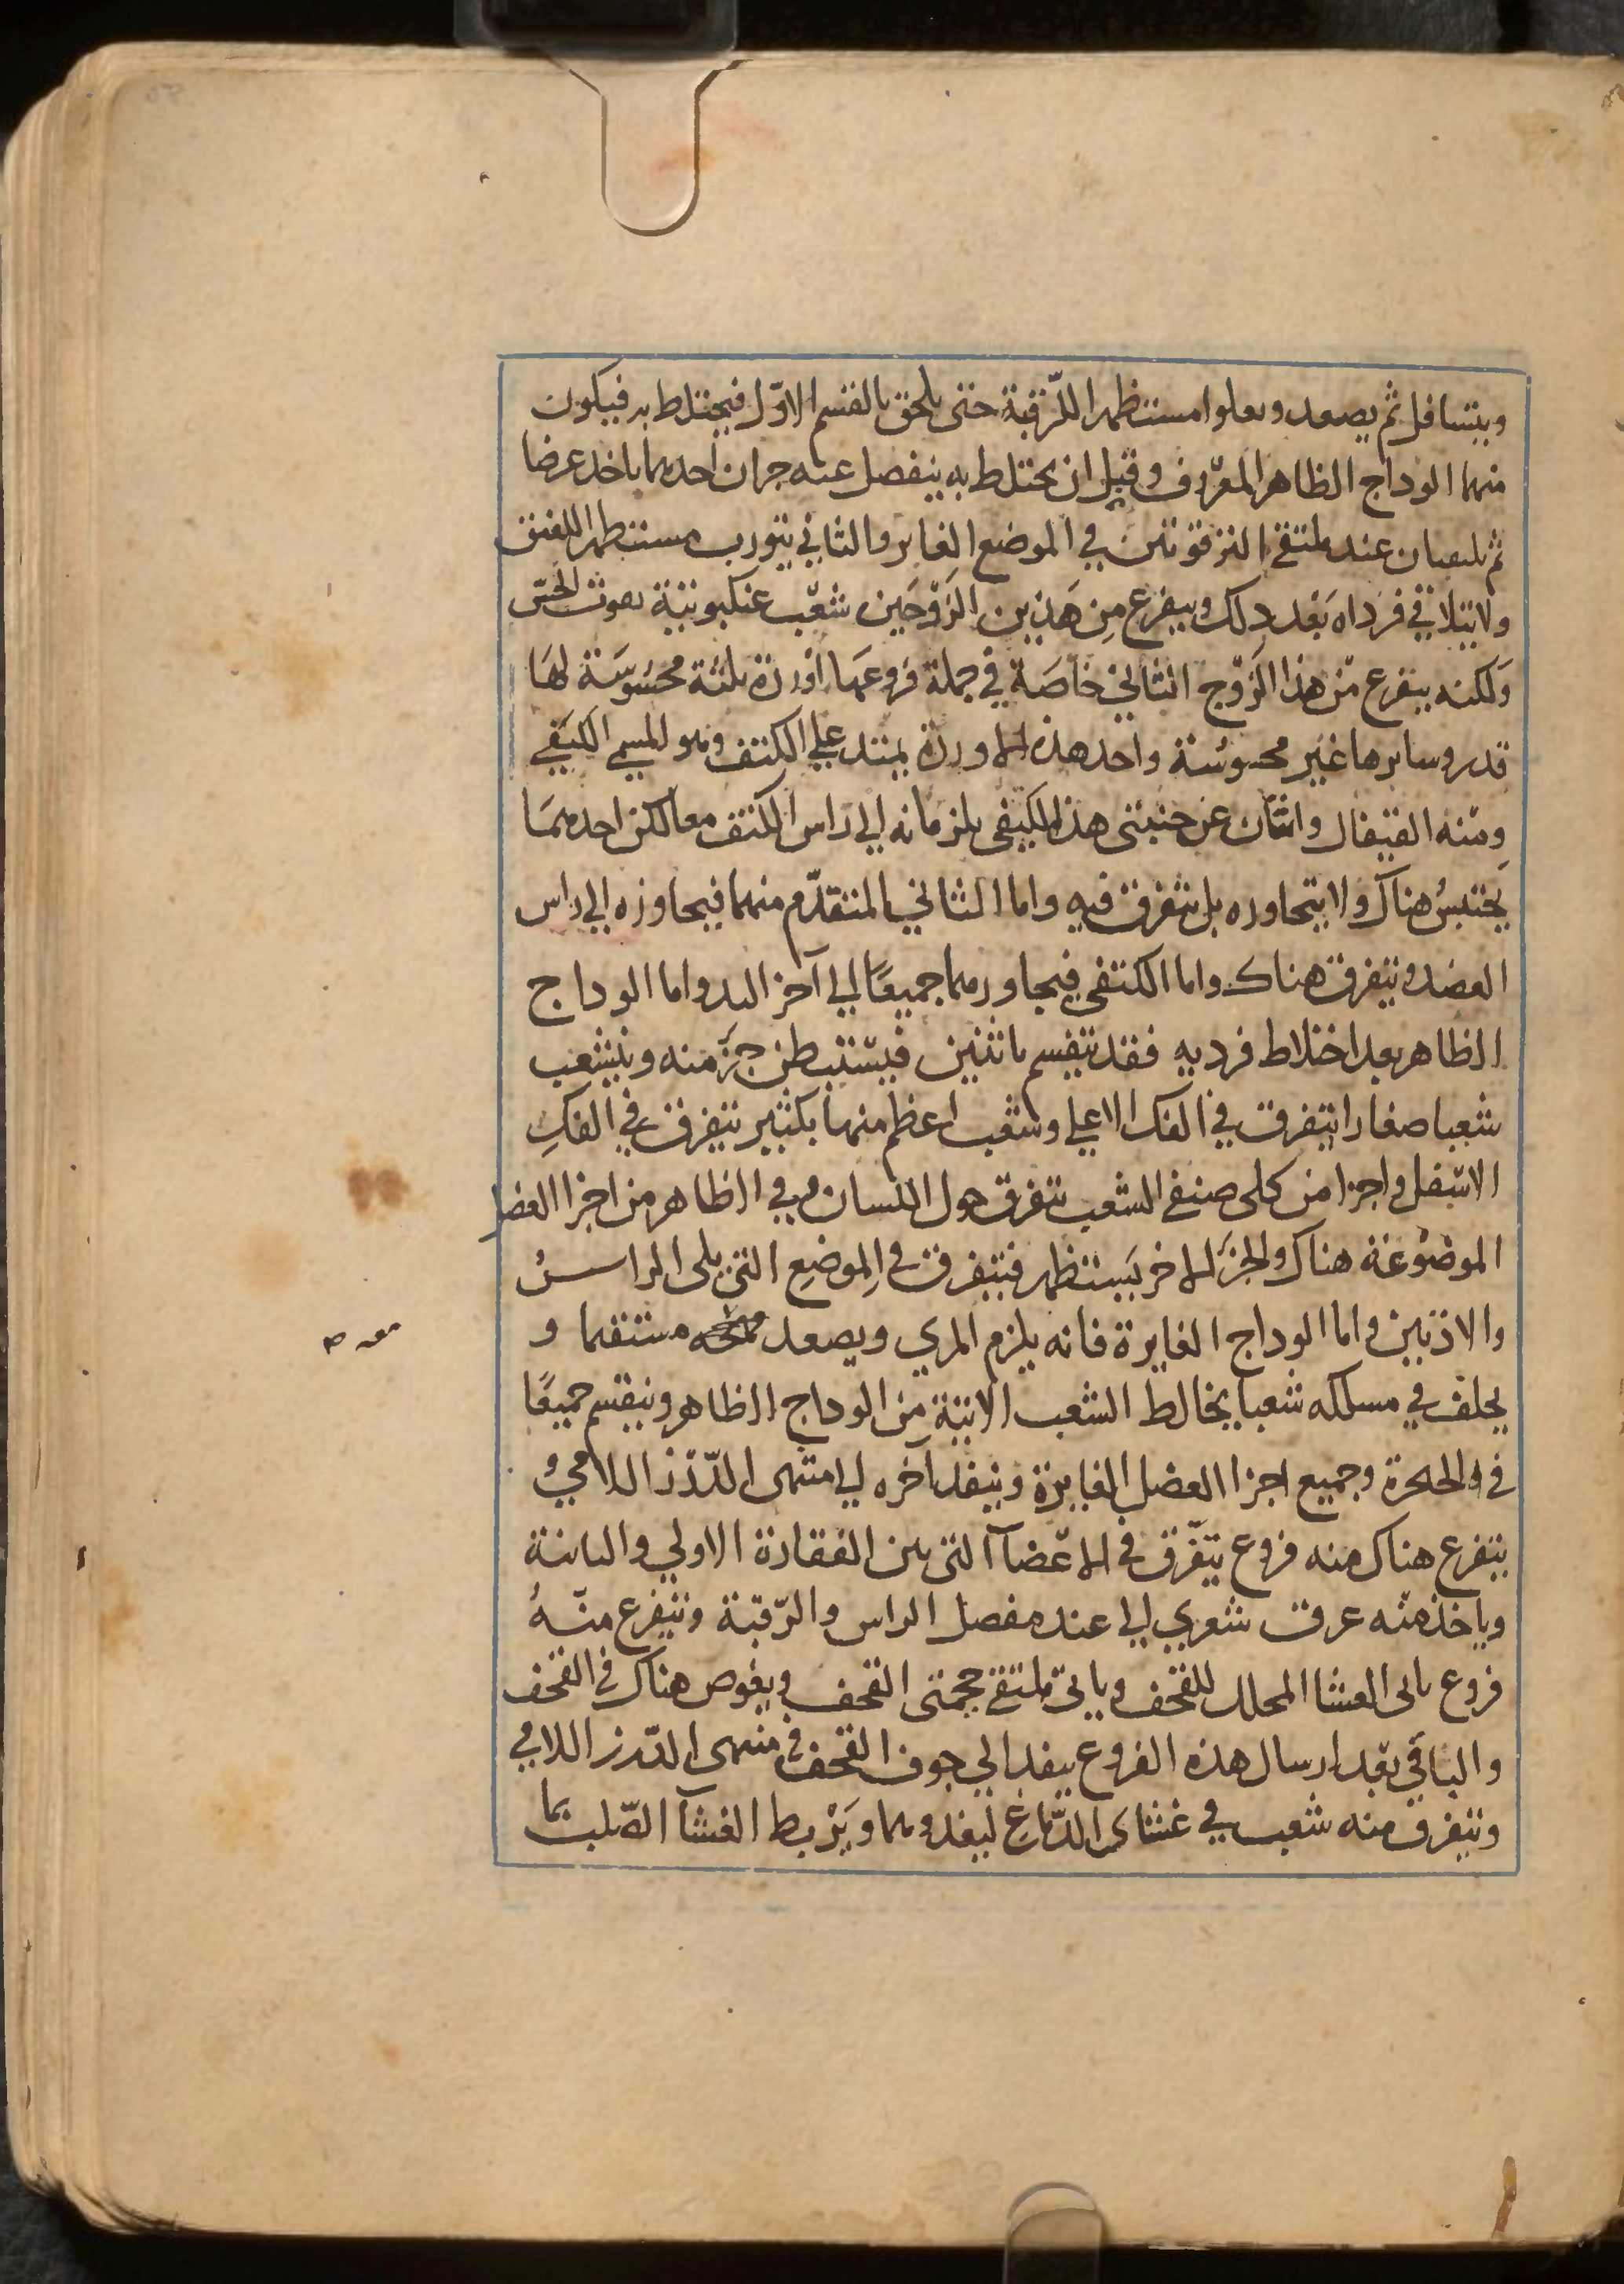 ويتسافل ثم يصعد ويعلوا مستظهرا للرّقبة حتى يلحق بالقسم الاوّل فيختلط به فيكون
منهما الوداج الظاهر المعروف وقبل ان يختلط به ينفصل عنه جزان احدهما ياخذ عرضا
ثم يلتقيان عند ملتقى الترقوتين في الموضع الغاير والثاني يتورب مستظهرا للعنق
ولا يتلاقى فرداه بَعْد ذلك ويتفرع مِن هَذين الزّوْجَين شعَب عنكبوتية تفوت الحسّ
وَلكنه يتفرع من هذا الزّوج الثاني خاصَة في جملة فروعهَا اورِدة ثلثة محسُوسَة لهَا
قدر وسايرها غير محسوسَة واحد هذه الاوردة يمتد على الكتف وهو المسمى الكتفي
ومنه القيفال واثنان عن جنبتي هذا الكتفي يلزمانه الي راس الكتف معا لكن احدهمَا
يَحتبسُ هناك ولا يتجاوزه بل يتفرق فيه واما الثاني المتقدّم منهما فيجاوزه الي راس
العضد ويتفرق هناك واما الكتفي فيجاوزهما جميعًا الي آخر اليد واما الوداج
الظاهر بعد اختلاط فرديه فقد ينقسم باثنين فيستبطن جزَ منه ويتشعب
شعبا صغارا يتفرق في الفك الاعلي وشعب اعظم منها بكثير يتفرق في الفكِ
الاسفل واجزا من كلى صنفي الشعب يتفرق حول اللسان وفي الظاهر من اجزا العضل
الموضوعَة هناك والجزَ الاخر يَستظهر فيتفرق في الموضِع التي يلى الراس
والاذنين واما الوداج الغايرة فانه يلزم المري ويصعد مستقيما و
معه
يخلف في مسلكه شعبا يخالط الشعب الاتية من الوداج الظاهر وينقسم جميعًا
في والحنجرة وجميع اجزا العضل الغايرة وينفد آخره الي منتهى الدّرز اللامي و
يتفرع هناك منه فروع يتفرّق في الاعْضآ التي بين الفقارة الاولي والثانية
وياخذ منه عرق شعري الي عند مفصل الراس والرّقبة ويتفرع منهُ
فروع ياتي الغشا المجلل للقحف وياتي ملتقى جمجمتي القحف ويغوص هناك في القحف
والباقي بعد ارسال هذه الفروع ينفد الي جوف القحف في منتهى الدّرز اللامي
ويتفرق منه شعب في غشاى الدّماغ ليغذوهما ويَرْبط الغشآ الصّلب بما